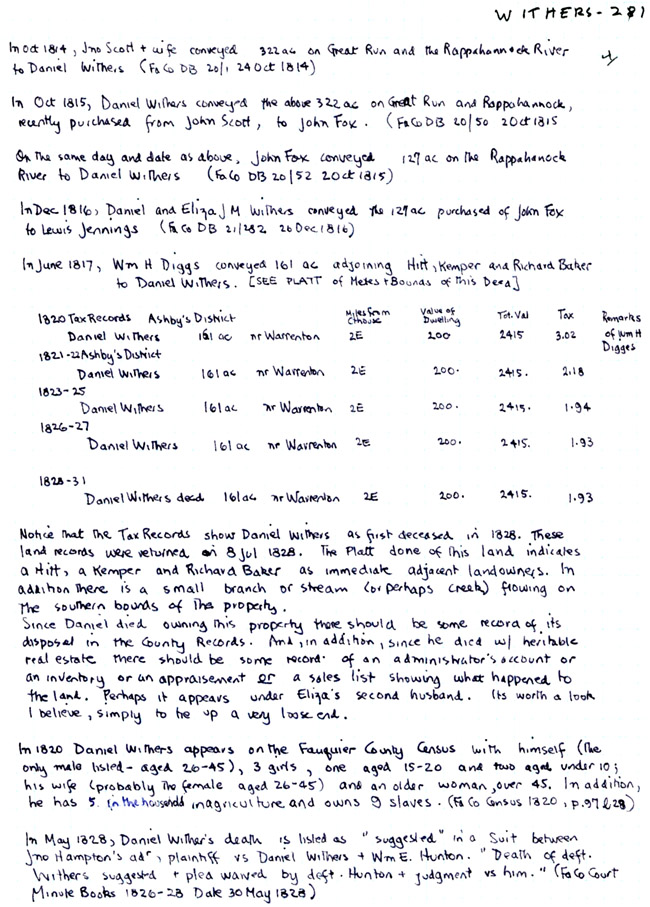 WITHERS-281
In Oct 1814, Jno Scott + wife conveyed 322 ac on Great Run and the Rappahannock River
to Daniel Withers (FaCo DB 20/1 24 Oct 1814)
In Oct 1815, Daniel Withers conveyed the above 322 ac on Great Run and Rappahannock,
recently purchased from John Scott, to John Fox. (FaCo DB 20/50 2 Oct 1815
On the same day and date as above, John Fox conveyed 127 ac on the Rappahanock
River to Daniel Withers (FaCo DB 20/52 2 Oct 1815)
In Dec 1816, Daniel and Eliza J M Withers conveyed the 127 ac purchased of John Fox
to Lewis Jennings (Fa Co DB 21/282 26 Dec 1816)
In June 1817, Wm H Diggs conveyed 161 ac adjoining Hitt, Kemper and Richard Baker
to Daniel Withers. [SEE PLATT of Metes + Bounds of this Deed]
1820 Tax Records Ashby's District Miles from Cthouse Value of Dwelling Tot. Val Tax Remarks
Daniel Withers 161 ac nr Warrenton 2E 200 2415 3.02 of Wm H Digges
1821-22 Ashby's District
Daniel Withers 161 ac nr Warrenton 2E 200. 2415. 2.18
1823-25
Daniel Withers 161 ac nr Warrenton 2E 200. 2415. 1.94
1826-27
Daniel Withers 161 ac nr Warrenton 2E 200. 2415. 1.93
1828-31
Daniel Withers decd 161 ac nr Warrenton 2E 200. 2415. 1.93
Notice that the Tax Records show Daniel Withers as first deceased in 1828. These
land records were returned on 8 Jul 1828. The Platt done of this land indicates
a Hitt, a Kemper and Richard Baker as immediate adjacent landowners. In
addition there is a small branch or stream (or perhaps creek) flowing on
the southern bounds of the property.
Since Daniel died owning this property there should be some record of its
disposal in the County Records. And, in addition, since he died w/ heritable
real estate there should be some record of an administrator's account or
an inventory or an appraisement or a sales list showing what happened to
the land. Perhaps it appears under Eliza's second husband. Its worth a look
I believe, simply to tie up a very loose end.
In 1820 Daniel Withers appears on the Fauquier County Census with himself (the
only male listed - aged 26-45), 3 girls, one aged 15-20 and two aged under 10;
his wife (probably the female aged 26-45) and an older woman, over 45. In addition,
he has 5 in the household in agriculture and owns 9 slaves. (Fa Co Census 1820, p.97 & 28)
In May 1828, Daniel Wither's death is listed as "suggested" in a Suit between
Jno Hampton's adr, plaintiff vs Daniel Withers + Wm E. Hunton. "Death of deft.
Withers suggested + plea waived by deft. Hunton + judgment vs him." (FaCo Court
Minute Books 1826-28 Date 30 May 1828)